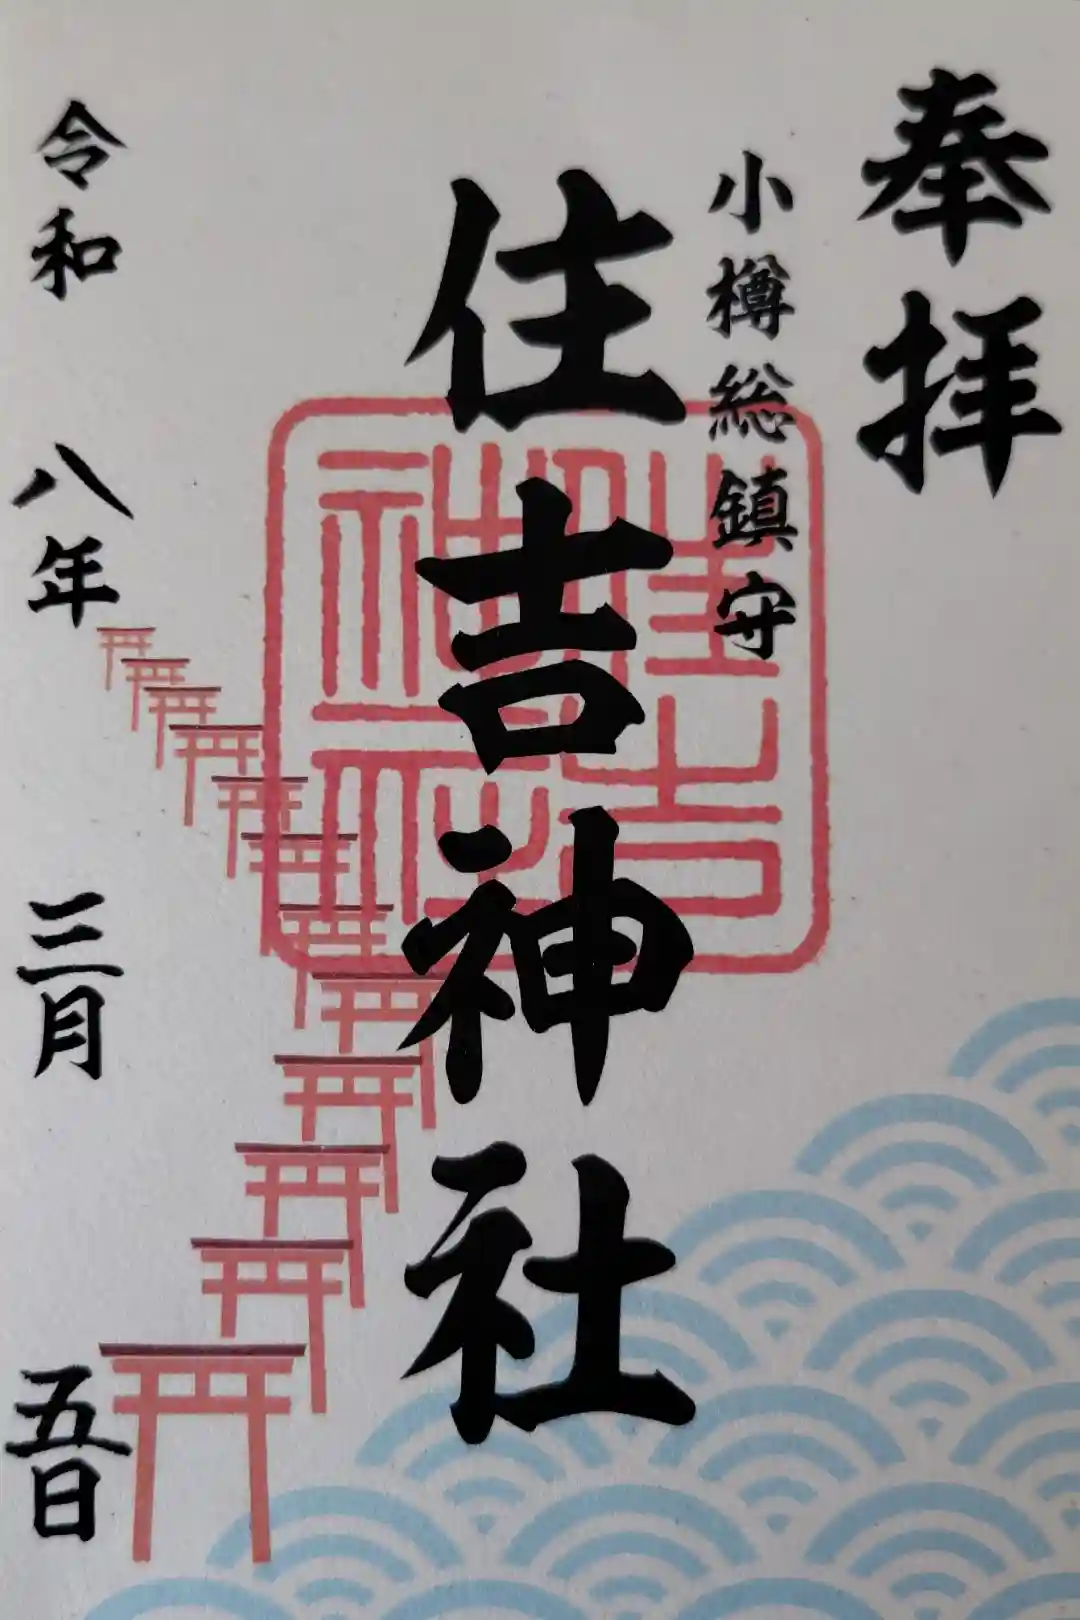 奉拝
小樽総鎮守
住吉神社
住吉
神社
令和八年三月五日